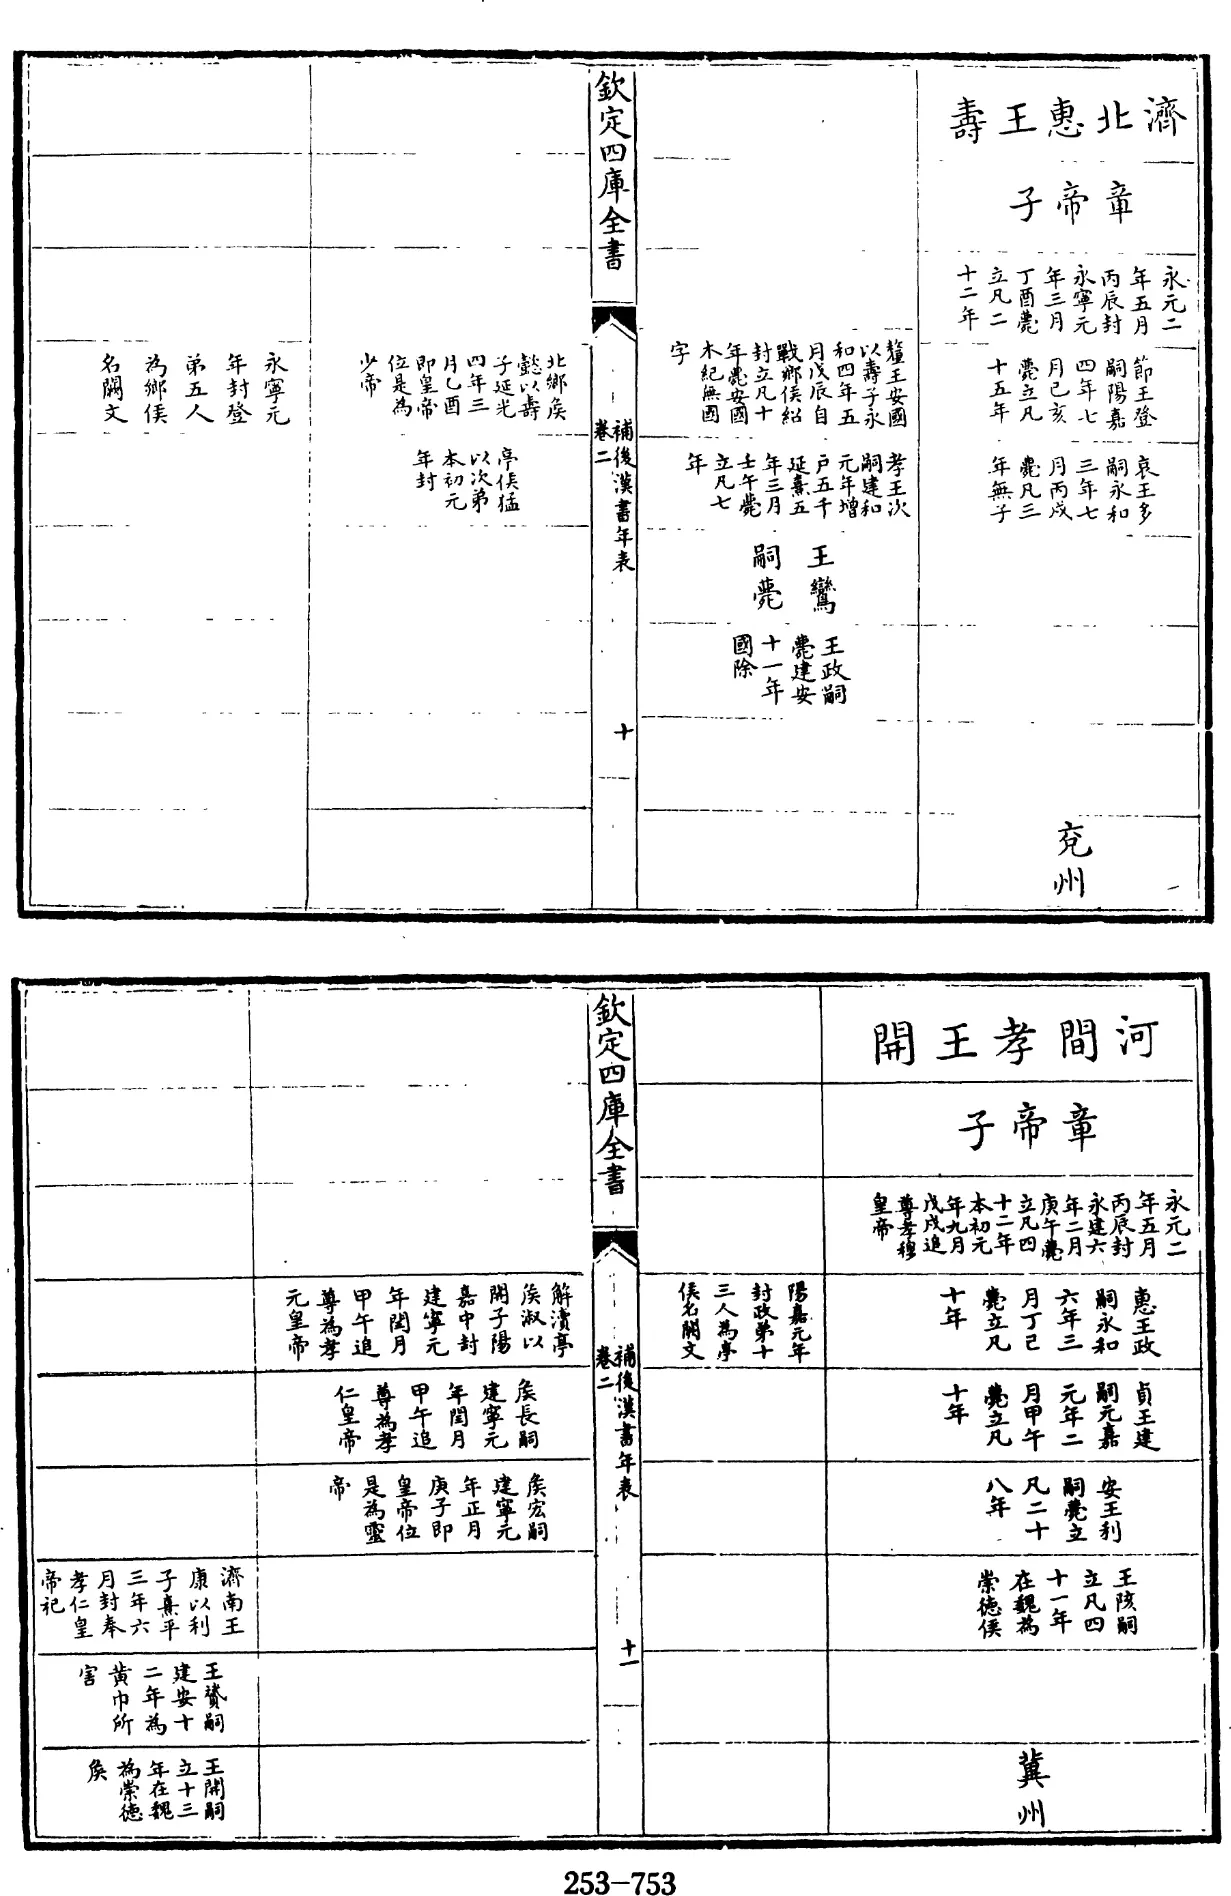 濟北惠王壽
章帝子
永元二
年五月
丙辰封
永寧元
年三月
丁酉薨
立凡二
十二年
節王登
嗣陽嘉
四年七
月己亥
薨立凡
十五年
哀王多
嗣永和
三年七
月丙戌
薨凡三
年無子
兗州
釐王安國
以壽子永
和四年五
月戊辰自
戰鄉侯紹
封立凡十
年薨安國
本紀無國
字
孝王次
嗣建和
元年增
戶五千
延熹五
年三月
壬午薨
立凡七
年
王鸞
嗣薨
王政嗣
薨建安
十一年
國除
欽定四庫全書
補後漢書年表
卷二
十
北鄉侯
懿以壽
子延光
四年三
月乙酉
即皇帝
位是為
少帝
亭侯猛
以次弟
本初元
年封
永寧元
年封登
弟五人
為鄉侯
名闕文
河間孝王開
章帝子
永元二
年五月
丙辰封
永建六
年二月
庚午薨
立凡四
十二年
本初元
年九月
戊戌追
尊孝穆
皇帝
惠王政
嗣永和
六年三
月丁己
薨立凡
十年
貞王建
嗣元嘉
元年二
月甲午
薨立凡
十年
安王利
嗣薨立
凡二十
八年
王陔嗣
立凡四
十一年
在魏為
崇德侯
冀州
陽嘉元年
封政弟十
三人為亭
侯名闕文
欽定四庫全書
補後漢書年表
卷二
十一
解瀆亭
侯淑以
開子陽
嘉中封
建寧元
年閏月
甲午追
尊為孝
元皇帝
侯長嗣
建寧元
年閏月
甲午追
尊為孝
仁皇帝
侯宏嗣
建寧元
年正月
庚子即
皇帝位
是為靈
帝
濟南王
康以利
子熹平
三年六
月封奉
孝仁皇
帝祀
王贇嗣
建安十
二年為
黃巾所
害
王開嗣
立十三
年在魏
為崇德
侯
253-753